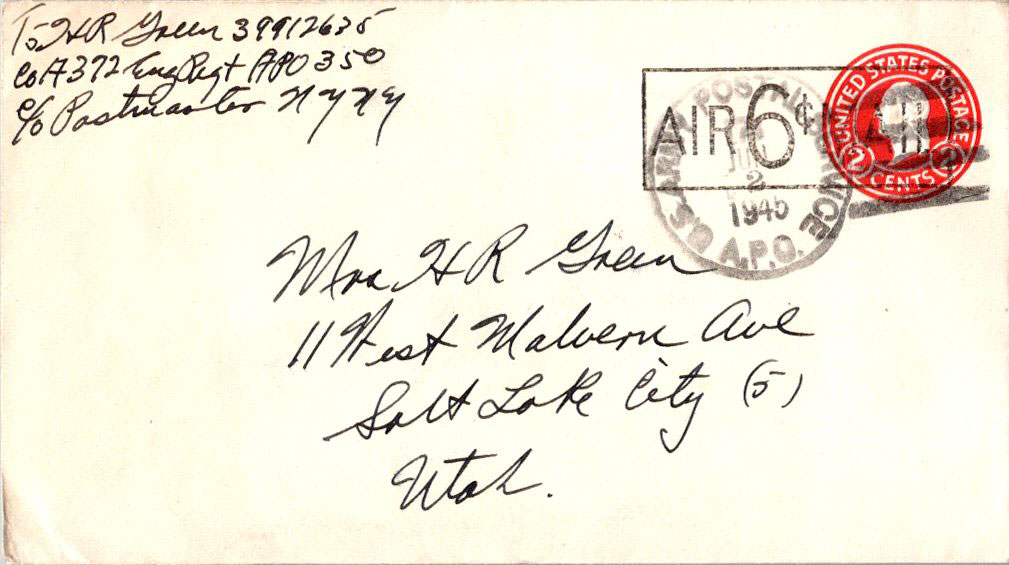 T5 HR Green 39912635
Co A 372 Eng Regt APO 350
c/o Postmaster N Y N Y
UNITED STATES POSTAGE
2 CENTS 2
AIR 6¢ AIR
U.S. ARMY POSTAL SERVICE
2
1945
A.P.O.
Mrs H R Green
11 West Malvern Ave
Salt Lake City (5)
Utah.